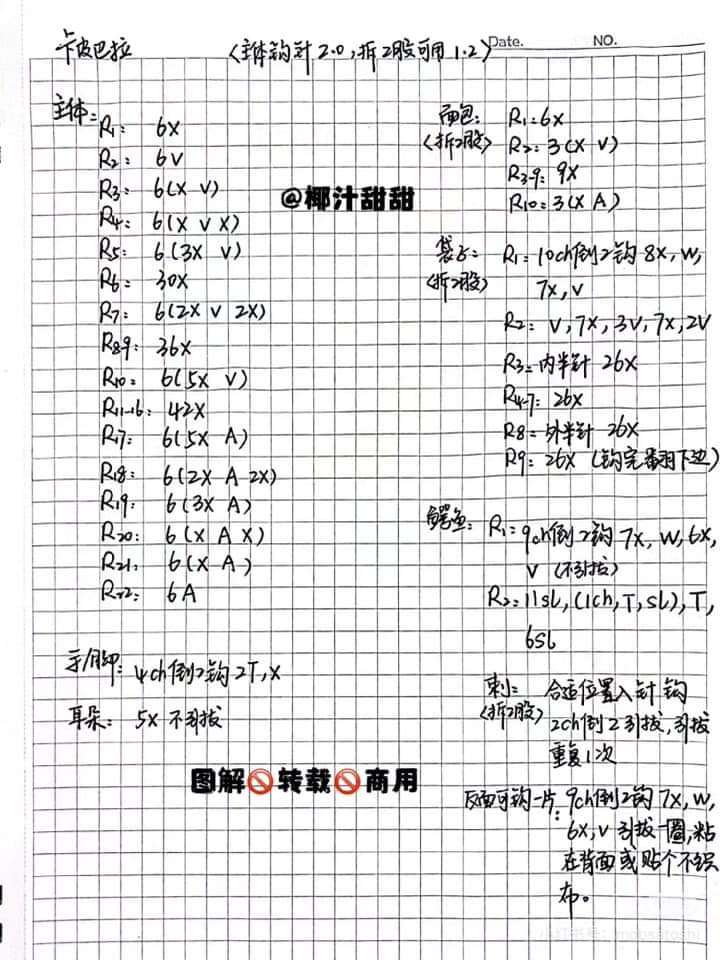 卡皮巴拉 〈主体钩针2.0,拆2股可用1.2〉
Date. NO.
主体:
R1: 6X
R2: 6V
R3: 6(X V)
R4: 6(X V X)
R5: 6(3X V)
R6: 30X
R7: 6(2X V 2X)
R8-9: 36X
R10: 6(5X V)
R11-16: 42X
R17: 6(5X A)
R18: 6(2X A 2X)
R19: 6(3X A)
R20: 6(X A X)
R21: 6(X A)
R22: 6A
手/脚: 4ch倒2钩2T,X
耳朵: 5X 不引拔
@椰汁甜甜
面包:
〈拆2股〉
R1: 6X
R2: 3(X V)
R3-9: 9X
R10: 3(X A)
袋子:
〈拆2股〉
R1: 10ch倒2钩8X,W,
7X,V
R2: V,7X,3V,7X,2V
R3: 内半针 26X
R4-7: 26X
R8: 外半针 26X
R9: 26X (钩完翻下边)
鳄鱼: R1: 9ch倒2钩7X,W,6X,
V (不引拔)
R2: 11sl,(1ch,T,sl),T,
6sl
刺: 合适位置入针钩
〈拆2股〉 2ch倒2引拔,引拔
重复1次
反面可钩一片: 9ch倒2钩7X,W,
6X,V 引拔一圈,粘
在背面或贴个不织
布。
图解🚫转载🚫商用